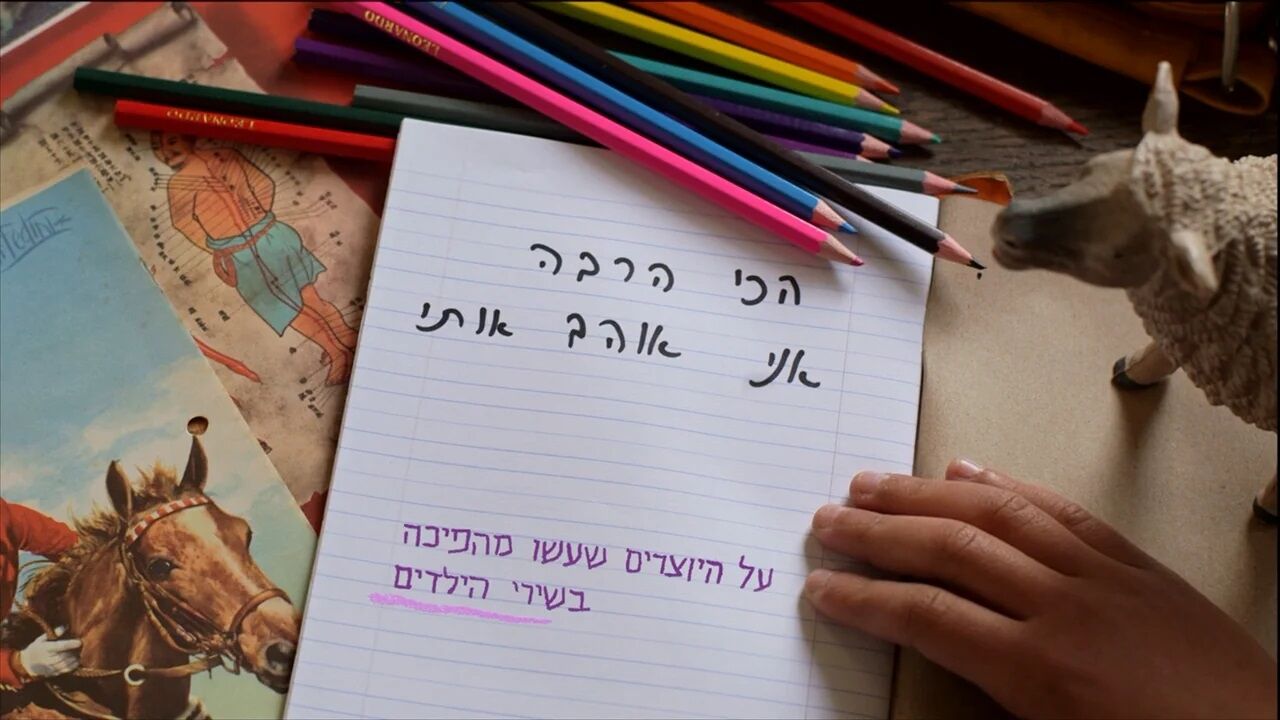 הכי הרבה
אני אוהב אותי
על היוצרים שעשו מהפיכה
בשירי הילדים
LEONARDO
LEONARDO